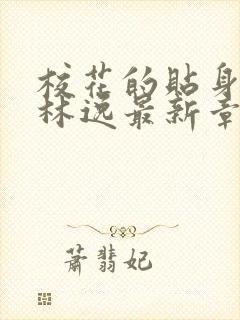 校花的貼身
林逸最新章
蕭翡妃